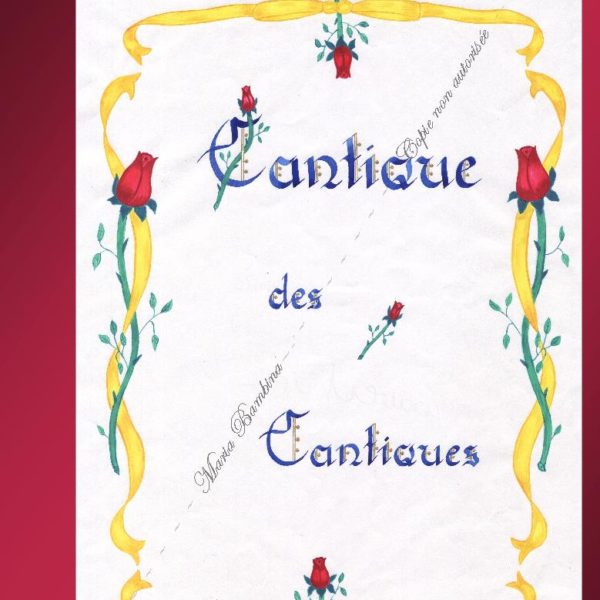 Cantique
des
Cantiques
Maria Bambina - - - Copie non autorisée